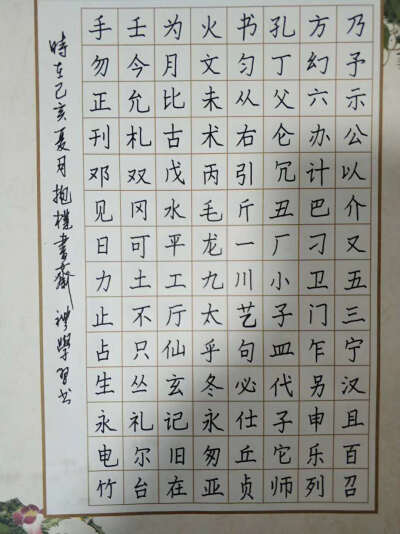 乃予示公以介又五三宁汉且百召
方幻六办计巴刁卫门乍另申乐列
孔丁父仑冗丑厂小子皿代子它师
书匀从右引斤一川艺句必仕丘贞
火文未术丙毛龙九太乎冬永匆亚
为月比古戊水平工厅仙玄记旧在
壬今允札双冈可土不只丛礼尔台
手勿正刊邓见日力止占生永电竹
時在己亥夏月抱樸書齋學習书